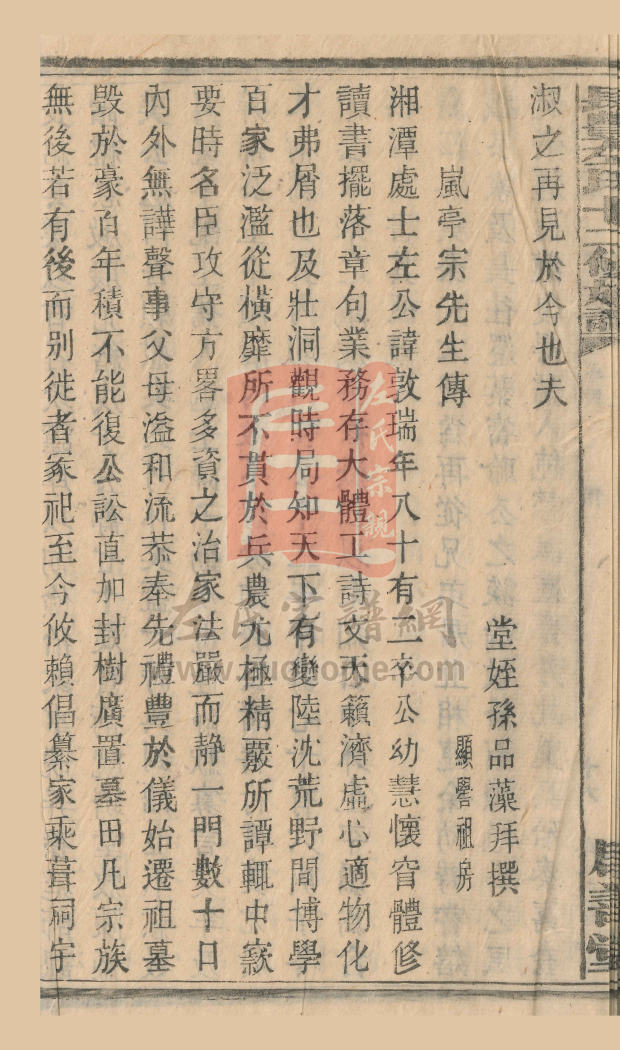 淑之再見於今也夫
堂姪孫品藻拜撰
顯譽祖房
嵐亭宗先生傳
湘潭處士左公諱敦瑞年八十有二卒公幼慧懷窅體修
讀書擺落章句業務存大體工詩文天籟濟虛心適物化
才弗屑也及壯洞觀時局知天下有變陸沈荒野間博學
百家泛濫從橫靡所不貫於兵農尤極精覈所譚輒中窾
要時名臣攻守方畧多資之治家法嚴而静一門數十口
內外無譁聲事父母溢和流恭奉先禮豐於儀始遷祖墓
毀於豪百年積不能復公訟直加封樹廣置墓田凡宗族
無後若有後而別徙者冢祀至今攸賴倡纂家乘葺祠宇
左氏宗親
左氏宗譜網